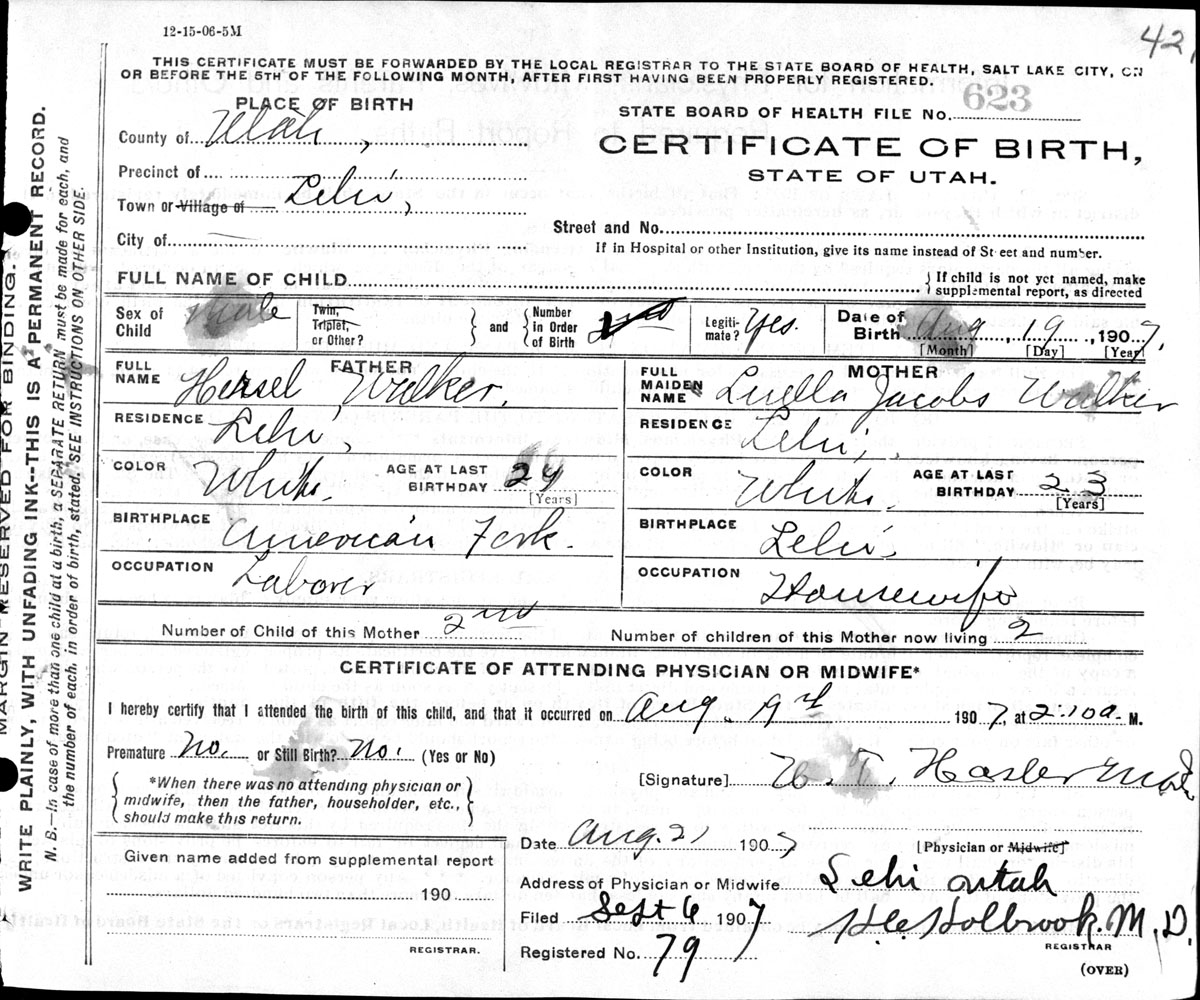 12-15-06-5M
42
THIS CERTIFICATE MUST BE FORWARDED BY THE LOCAL REGISTRAR TO THE STATE BOARD OF HEALTH, SALT LAKE CITY, ON
OR BEFORE THE 5TH OF THE FOLLOWING MONTH, AFTER FIRST HAVING BEEN PROPERLY REGISTERED.
PLACE OF BIRTH
STATE BOARD OF HEALTH FILE No. 623
County of Utah,
CERTIFICATE OF BIRTH,
Precinct of
STATE OF UTAH.
Town or Village of Lehi,
Street and No.
City of
If in Hospital or other Institution, give its name instead of Street and number.
FULL NAME OF CHILD
If child is not yet named, make
supplemental report, as directed
Sex of Child Male
Twin, Triplet, or Other? and Number in Order of Birth 2nd
Legiti-mate? Yes.
Date of Birth Aug, 19, 1907,
[Month] [Day] [Year]
FATHER
FULL NAME Hersel Walker,
RESIDENCE Lehi,
COLOR White. AGE AT LAST BIRTHDAY 24
[Years]
BIRTHPLACE American Fork.
OCCUPATION Laborer
MOTHER
FULL MAIDEN NAME Luella Jacobs Walker
RESIDENCE Lehi,
COLOR White. AGE AT LAST BIRTHDAY 23
[Years]
BIRTHPLACE Lehi.
OCCUPATION Housewife
Number of Child of this Mother 2nd Number of children of this Mother now living 2
CERTIFICATE OF ATTENDING PHYSICIAN OR MIDWIFE*
I hereby certify that I attended the birth of this child, and that it occurred on Aug. 1907, at 2:10a. M.
Premature No. or Still Birth? No. (Yes or No)
[Signature] Hasler
*When there was no attending physician or
midwife, then the father, householder, etc.,
should make this return.
Date Aug. 21 1907
[Physician or Midwife]
Given name added from supplemental report
Address of Physician or Midwife Lehi Utah
190
Filed Sept 6 1907 Holbrook. M. D.
REGISTRAR
REGISTRAR.
Registered No. 79
(OVER)
MARGIN RESERVED FOR BINDING.
WRITE PLAINLY, WITH UNFADING INK--THIS IS A PERMANENT RECORD.
N. B.—In case of more than one child at a birth, a SEPARATE RETURN must be made for each, and
the number of each, in order of birth, stated. SEE INSTRUCTIONS ON OTHER SIDE.